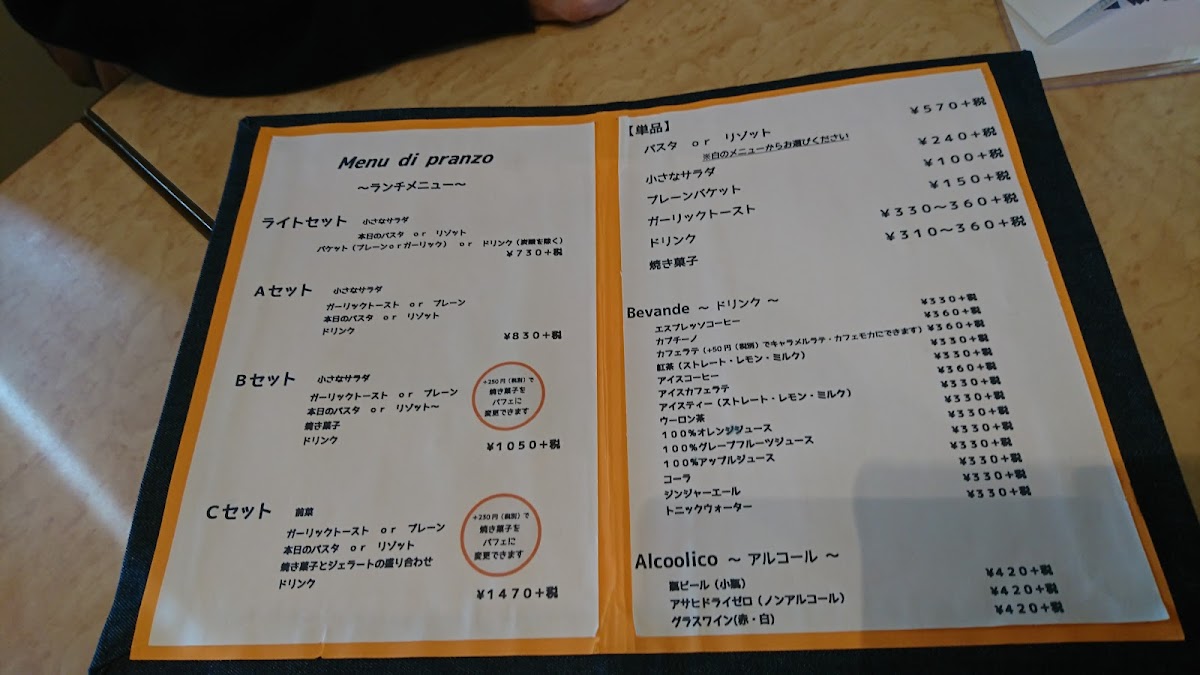 Menu di pranzo
～ランチメニュー～
ライトセット 小さなサラダ
本日のパスタ or リゾット
バケット（プレーンorガーリック） or ドリンク（炭酸を除く）
￥730+税
Aセット 小さなサラダ
ガーリックトースト or プレーン
本日のパスタ or リゾット
ドリンク
￥830+税
Bセット 小さなサラダ
ガーリックトースト or プレーン
本日のパスタ or リゾット～
焼き菓子
ドリンク
+230円（税別）で
焼き菓子を
パフェに
変更できます
￥1050+税
Cセット 前菜
ガーリックトースト or プレーン
本日のパスタ or リゾット
焼き菓子とジェラートの盛り合わせ
ドリンク
+230円（税別）で
焼き菓子を
パフェに
変更できます
￥1470+税
【単品】
パスタ or リゾット ￥570+税
※白のメニューからお選びください
小さなサラダ ￥240+税
プレーンバケット ￥100+税
ガーリックトースト ￥150+税
ドリンク ￥330～360+税
焼き菓子 ￥310～360+税
Bevande ～ ドリンク ～
エスプレッソコーヒー ￥330+税
カプチーノ ￥360+税
カフェラテ（+50円（税別）でキャラメルラテ・カフェモカにできます） ￥360+税
紅茶（ストレート・レモン・ミルク） ￥330+税
アイスコーヒー ￥330+税
アイスカフェラテ ￥360+税
アイスティー（ストレート・レモン・ミルク） ￥330+税
ウーロン茶 ￥330+税
100%オレンジジュース ￥330+税
100%グレープフルーツジュース ￥330+税
100%アップルジュース ￥330+税
コーラ ￥330+税
ジンジャーエール ￥330+税
トニックウォーター ￥330+税
Alcoolico ～ アルコール ～
瓶ビール（小瓶） ￥420+税
アサヒドライゼロ（ノンアルコール） ￥420+税
グラスワイン(赤・白) ￥420+税